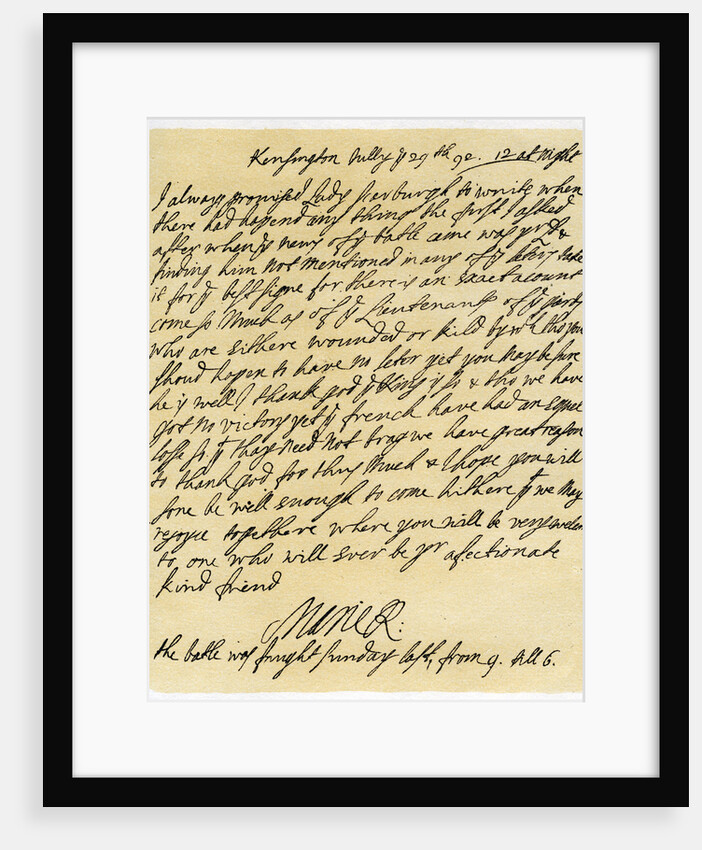 Kensington Jully yͤ 29ᵗʰ 92. 12 at night
I always promised Lady Scarburgh to write when
there had hapend any thing the first I asked
after when yͤ news of yͤ batle came was yʳ Lᵈ &
finding him not mentioned in any of yͤ leters take
it for yͤ best signe for there is an exact acount
come so much as of yͤ Lieutenants of yͤ
who are eithere wounded or kild by wᶜʰ tho you
shoud hapen to have no leter yet you may be sure
he is well I thank god yͤ King is so & tho we have
got no victory yet yͤ french have had an equal
loss so yᵗ they need not brag we have great reason
to thank god for thus much & I hope you will
sone be well enough to come hithere yᵗ we may
rejoyce togethere where you will be very welcom
to one who will ever be yʳ afectionate
kind friend
Marie R:
the batle was fought sunday last, from 9. till 6.